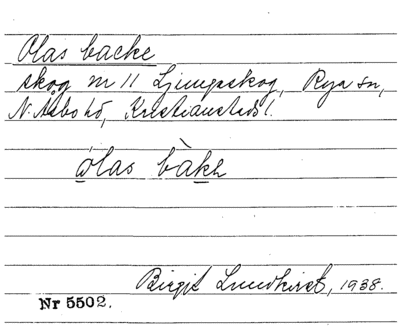 Olas backe
skog m 11 Ljungaskog, Rya sn,
N. Åsbo hd, Kristianstads l.
ólas bàkh
Birgit Lundkvist, 1938.
Nr 5502.